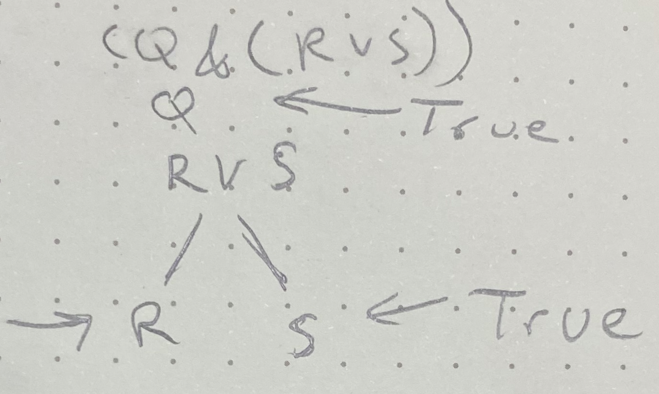 (Q & (R v S))
Q ← True
R v S
→ R S ← True